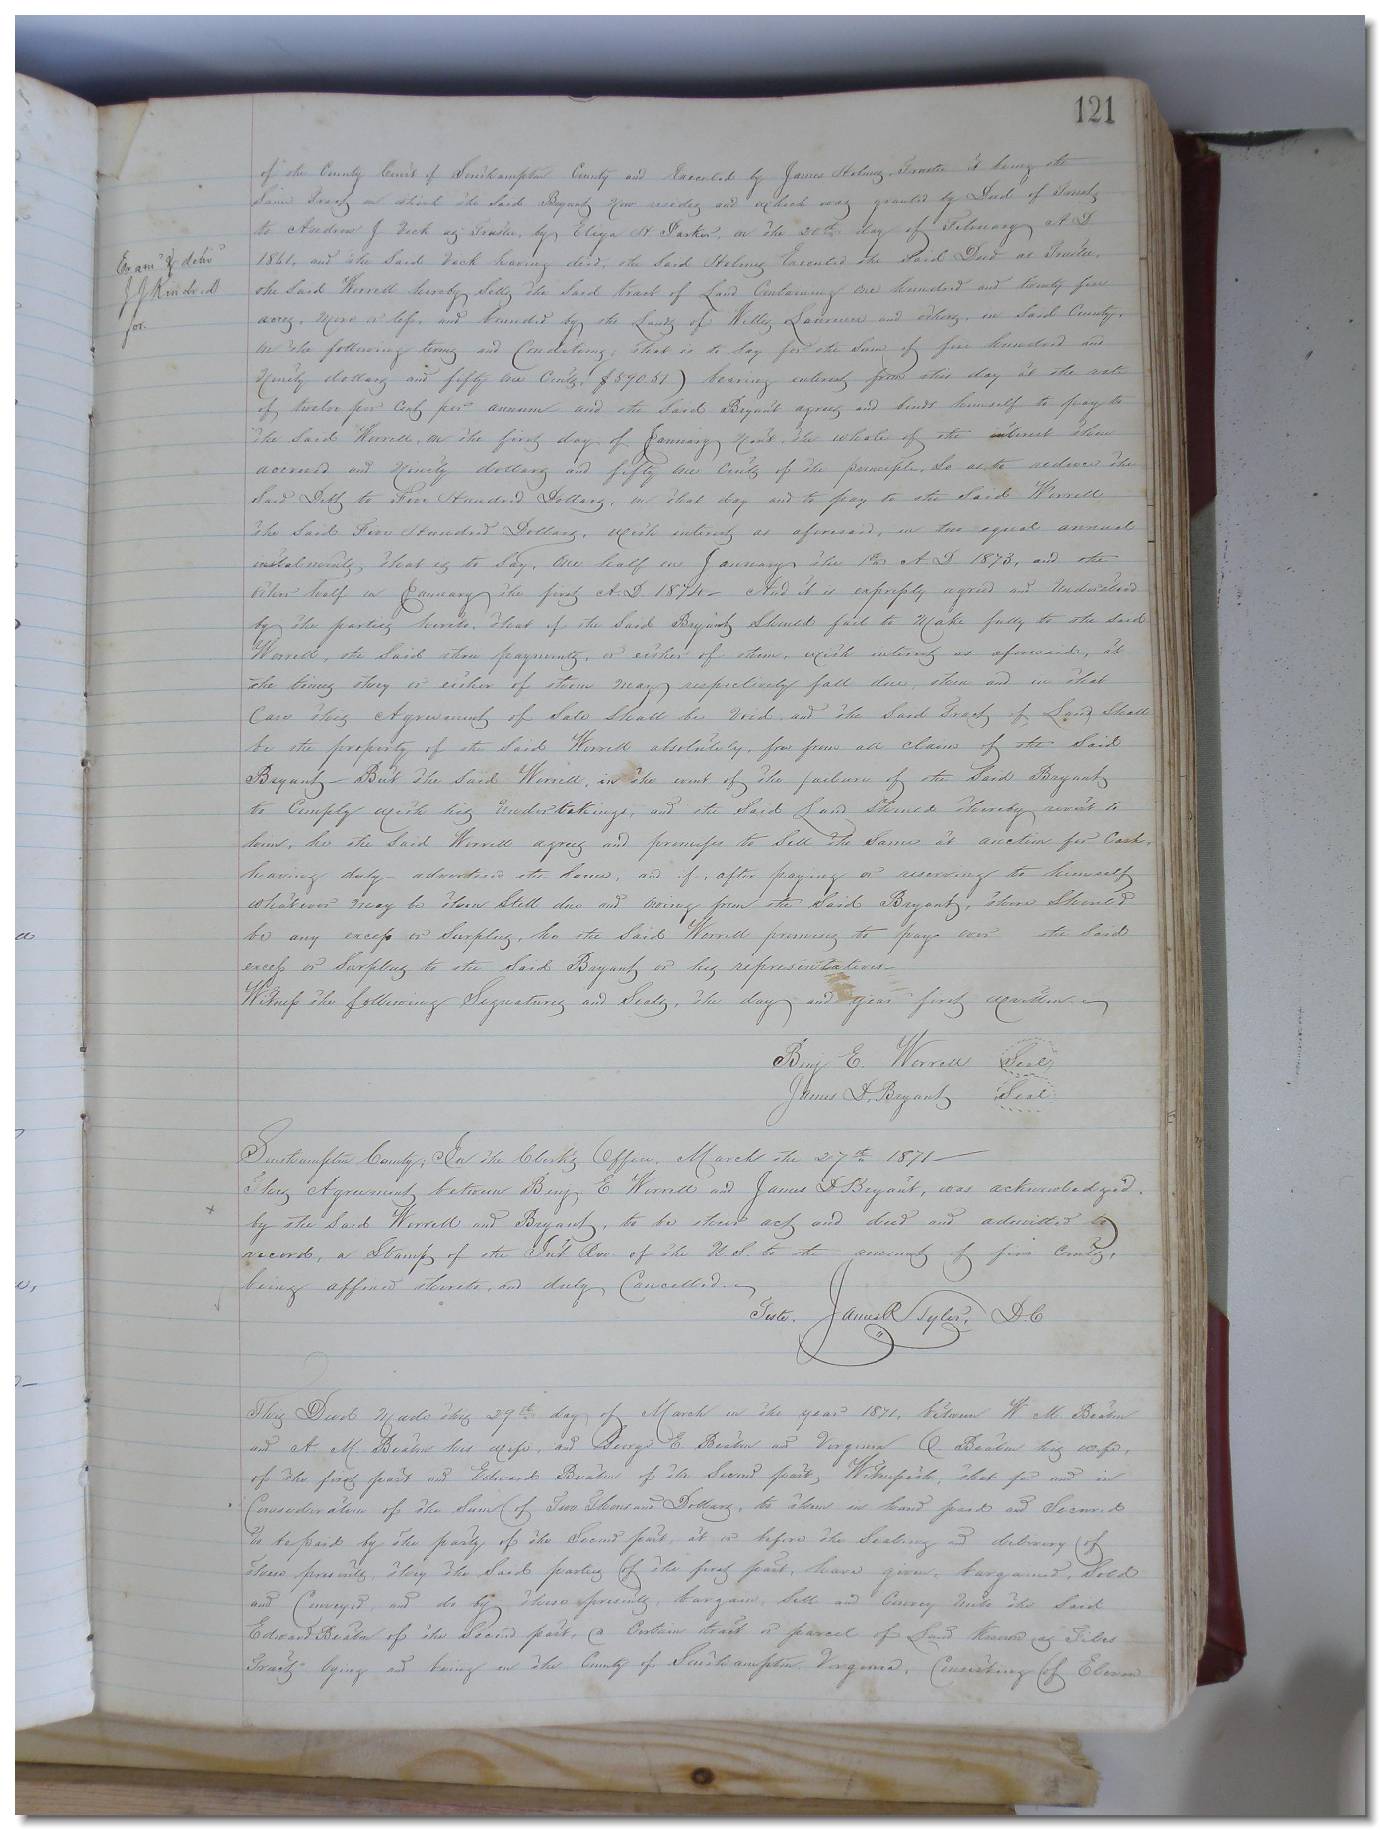 121
of the County Court of Southampton County and Executed by James Holmes, Trustee it being the
Same Tract on which the said Bryant now resides and which was granted by Deed of Trust
to Andrew J Veck as Trustee, by Eliza H Parker, on the 20th day of February A D
1861, and the Said Veck having died, the said Holmes Executed the Said Deed as Trustee,
Exam.d & deliv.d
J J Kindred
for.
the Said Worrell hereby Sells the Said tract of Land Containing one hundred and twenty five
acres, more or less, and bounded by the Lands of Lawrence and others, in Said County,
on the following terms and Conditions, that is to Say for the Sum of five hundred and
Ninety dollars and fifty one Cents, $590.51) bearing interest from this day at the rate
of twelve per Cent per annum and the Said Bryant agrees and binds himself to pay to
the Said Worrell, on the first day of January next the whole of the interest then
accrued and Ninety dollars and fifty one Cents of the principle, So as to reduce the
Said Debt to Five Hundred Dollars, on that day and to pay to the Said Worrell
the Said Five Hundred Dollars, with interest as aforesaid, in two equal annual
instalments, that is to Say, One half on January the 1st A D 1873, and the
other half on January the first A.D. 1874 — And it is expressly agreed and Understood
by the parties hereto, that if the Said Bryant Should fail to Make fully to the said
Worrell, the Said three payments, or either of them, with interest as aforesaid, at
the times they or either of them may respectively fall due, then and in that
Case this Agreement of Sale Shall be Void, and the Said Tract of Land Shall
be the property of the Said Worrell absolutely, free from all claim of the Said
Bryant — But the Said Worrell, in the event of the failure of the Said Bryant
to Comply with his Undertakings, and the Said Land Should thereby revert to
him, he the Said Worrell agrees and promises to Sell the Same at auction for Cash,
having duly advertised the Same, and if, after paying or reserving to himself
whatever may be then Still due and owing from the Said Bryant, there Should
be any excess or Surplus, he the Said Worrell promises to pay over the Said
excess or Surplus to the Said Bryant or his representatives —
Witness the following Signatures and Seals, the day and year first written.
Benj E. Worrell Seal
James D. Bryant Seal
Southampton County; In the Clerk's Office, March the 27th 1871 —
This Agreement between Benj E Worrell and James D Bryant, was acknowledged
by the Said Worrell and Bryant, to be their act and deed and admitted to
x
record, a Stamp of the Int Rev. of the U.S. to the amount of five Cents,
being affixed thereto, and duly Cancelled.
Teste. James R Tyler, D.C
This Deed Made this 29th day of March in the year 1871, between W M Beaton
and A. M. Beaton his wife, and George E Beaton and Virginia Q. Beaton his wife,
of the first part and Edward Beaton of the Second part, Witnesseth, that for and in
Consideration of the Sum of Two Thousand Dollars, to them in hand paid and Secured
to be paid by the party of the Second part, at or before the Sealing and delivery of
these presents, they the Said parties of the first part, have given, bargained, Sold
and Conveyed, and do by these presents, bargain, Sell and Convey Unto the Said
Edward Beaton of the Second part, a Certain tract or parcel of Land Known as
Tract lying and being in the County of Southampton Virginia, Consisting of Eleven